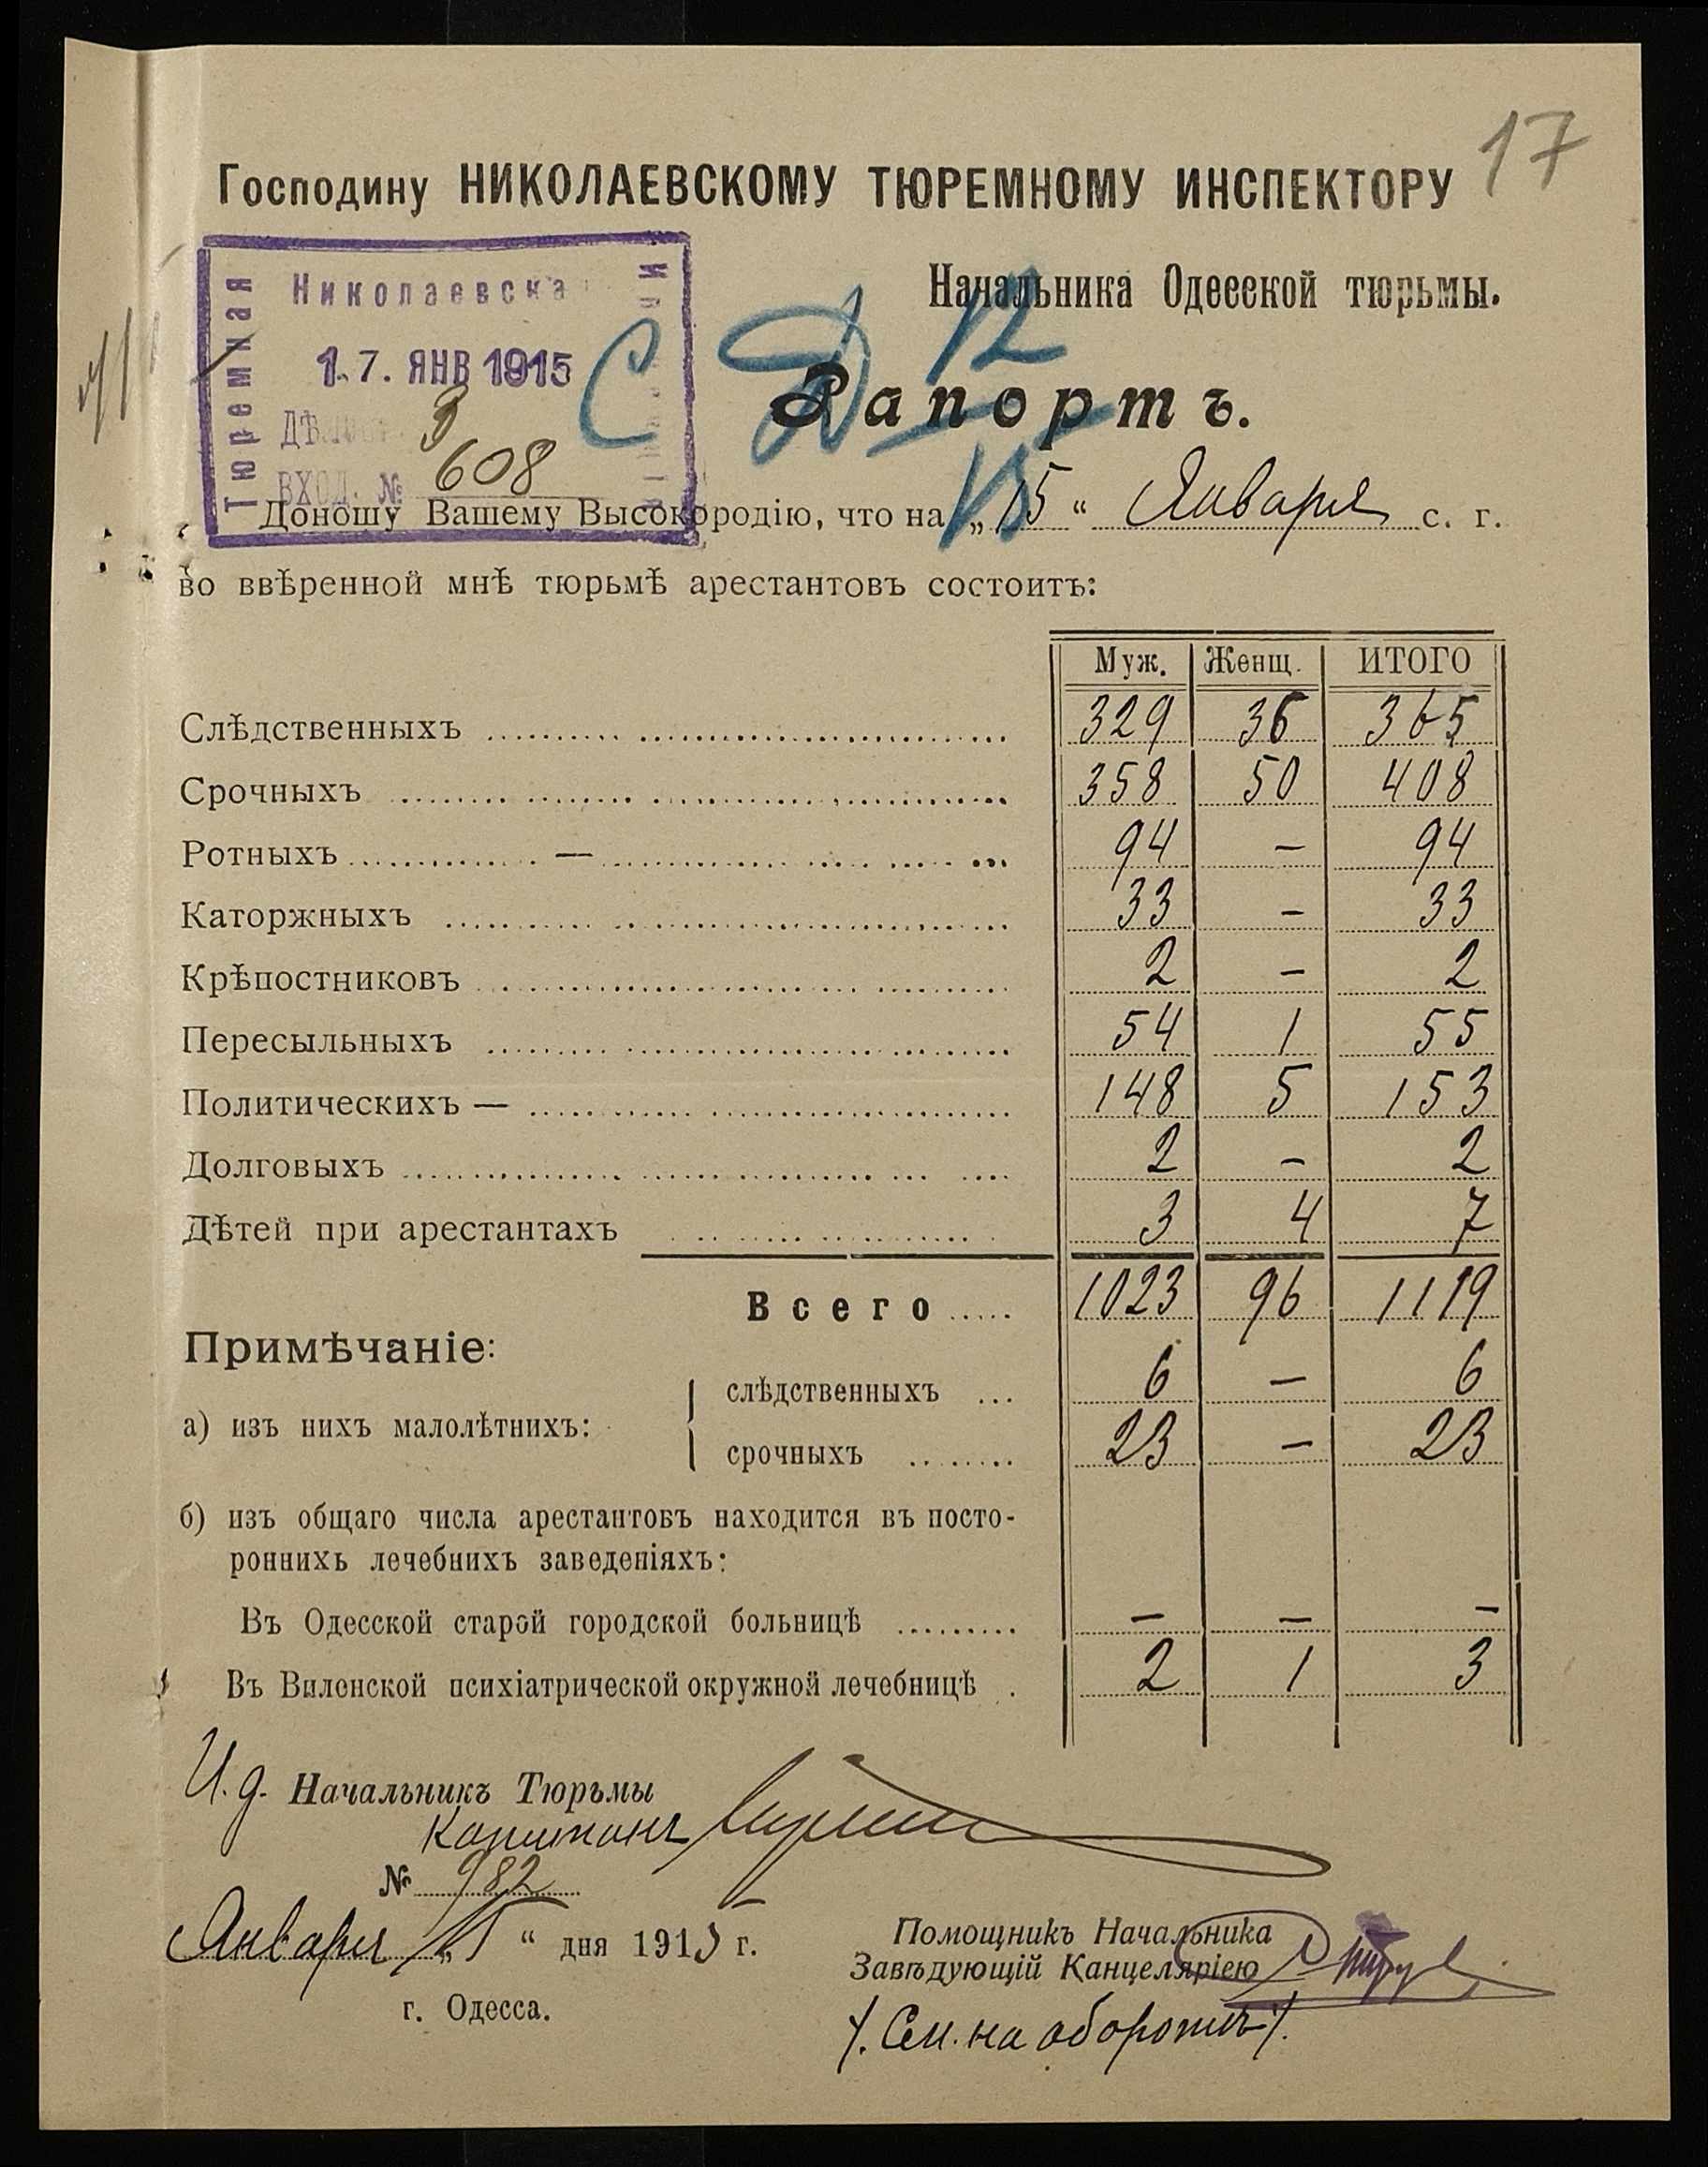 17
Господину НИКОЛАЕВСКОМУ ТЮРЕМНОМУ ИНСПЕКТОРУ
Николаевска
Тюремная
17. ЯНВ 1915
ВХОД. № 608
С
12
Начальника Одесской тюрьмы.
Рапортъ.
Доношу Вашему Высокородію, что на „15“ Января с. г.
во ввѣренной мнѣ тюрьмѣ арестантовъ состоитъ:
Муж. Женщ. ИТОГО
Слѣдственныхъ 329 36 365
Срочныхъ 358 50 408
Ротныхъ — 94 — 94
Каторжныхъ 33 — 33
Крѣпостниковъ 2 — 2
Пересыльныхъ 54 1 55
Политическихъ — 148 5 153
Долговыхъ 2 — 2
Дѣтей при арестантахъ 3 4 7
Всего 1023 96 1119
Примѣчаніе:
а) изъ нихъ малолѣтнихъ:
слѣдственныхъ 6 — 6
срочныхъ 23 — 23
б) изъ общаго числа арестантовъ находится въ посто-
роннихъ лечебнихъ заведеніяхъ:
Въ Одесской старой городской больницѣ — — —
Въ Виленской психіатрической окружной лечебницѣ 2 1 3
И.д. Начальникъ Тюрьмы
Капитанъ
№ 982
Января „15“ дня 1915 г.
г. Одесса.
Помощникъ Начальника
Завѣдующій Канцеляріею
/. См. на оборотѣ /.